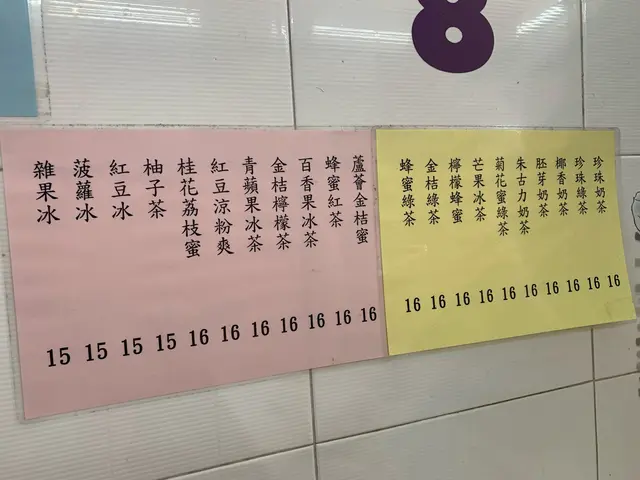 8
珍珠奶茶 16
珍珠綠茶 16
椰香奶茶 16
胚芽奶茶 16
朱古力奶茶 16
菊花蜜綠茶 16
芒果冰茶 16
檸檬蜂蜜 16
金桔綠茶 16
蜂蜜綠茶 16
蘆薈金桔蜜 16
蜂蜜紅茶 16
百香果冰茶 16
金桔檸檬茶 16
青蘋果冰茶 16
紅豆涼粉爽 16
桂花荔枝蜜 16
柚子茶 15
紅豆冰 15
菠蘿冰 15
雜果冰 15